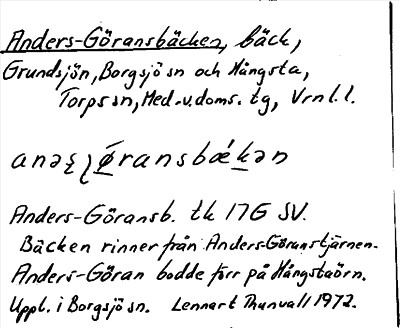 Anders-Göransbäcken, bäck,
Grundsjön, Borgsjö sn och Hångsta,
Torps sn, Med.-v. doms. tg, Vrnl. l.
Anders-Göransb. tk 17G SV.
Bäcken rinner från Anders-Göranstjärnen.
Anders-Göran bodde förr på Hångstaörn.
Uppl. i Borgsjö sn. Lennart Thunvall 1972.